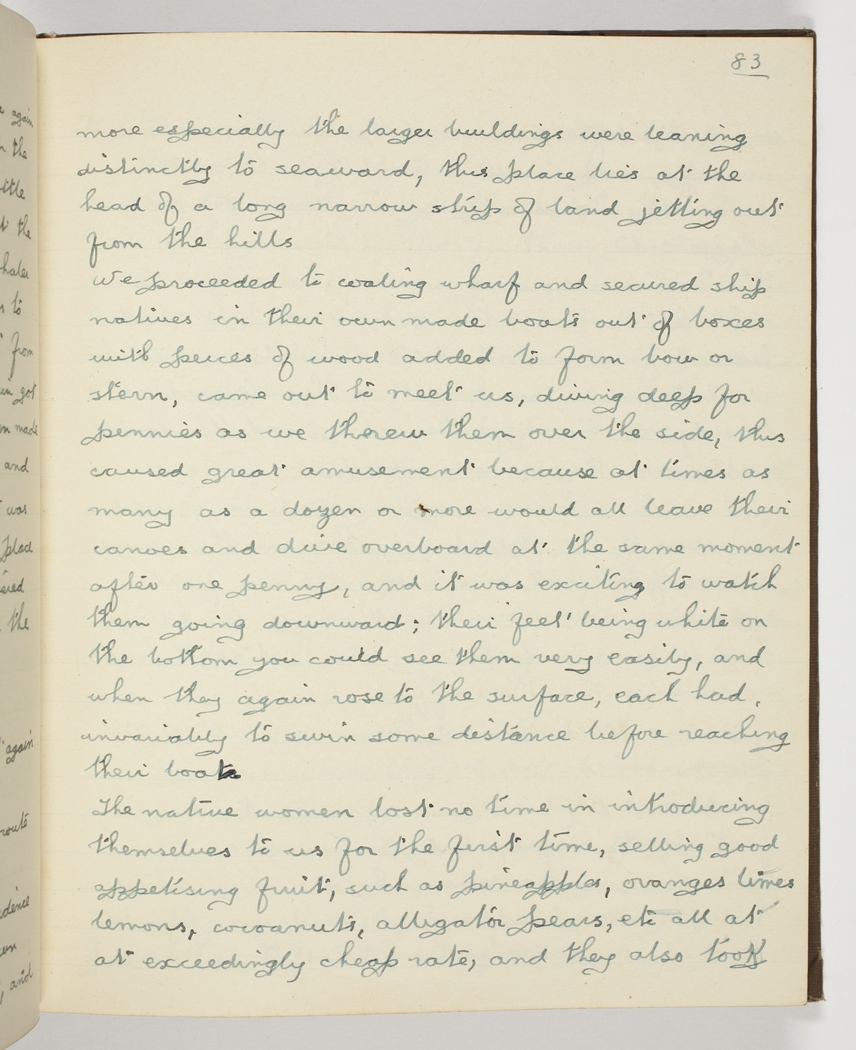 83
more especially the larger buildings were leaning
distinctly to seaward, this place lies at the
head of a long narrow strip of land jetting out
from the hills
We proceeded to coaling wharf and secured ship
natives in their own made boats out of boxes
with peices of wood added to form bow or
stern, came out to meet us, diving deep for
pennies as we therew them over the side, this
caused great amusement because at times as
many as a dozen or more would all leave their
canoes and dive overboard at the same moment
after one penny, and it was exciting to watch
them going downward; their feet being white on
the bottom you could see them very easily, and
when they again rose to the surface, each had,
invariably to swim some distance before reaching
their boats
The native women lost no time in introducing
themselves to us for the first time, selling good
appetising fruit, such as pineapples, oranges limes
lemons, cocoanuts, alligator pears, etc all at
at exceedingly cheap rate, and they also took
again
the
the
from
got
made
and
was
place
the
again
and